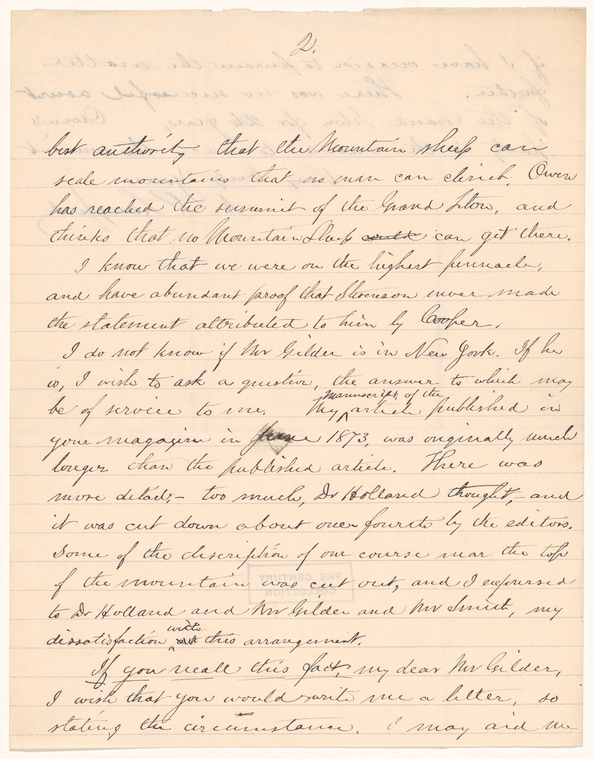 2.
best authority that the Mountain sheep can
scale mountains that no man can climb. Owen
has reached the summit of the Grand Teton, and
thinks that no Mountain Sheep could can get there.
I know that we were on the highest pinnacle,
and have abundant proof that Stevenson never made
the statement attributed to him by Cooper.
I do not know if Mr Gilder is in New York. If he
is, I wish to ask a question, the answer to which may
manuscript of the
be of service to me. My article published in
your magazine in June 1873, was originally much
longer than the published article. There was
more detail; – too much, Dr Holland thought, – and
it was cut down about one-fourth by the editors.
Some of the description of our course near the top
of the mountain was cut out, and I expressed
to Dr Holland and Mr Gilder and Mr Smith, my
with
dissatisfaction this arrangement.
If you recall this fact, my dear Mr Gilder,
I wish that you would write me a letter, so
stating the circumstance. I may aid me
THE CENTURY
COLLECTION